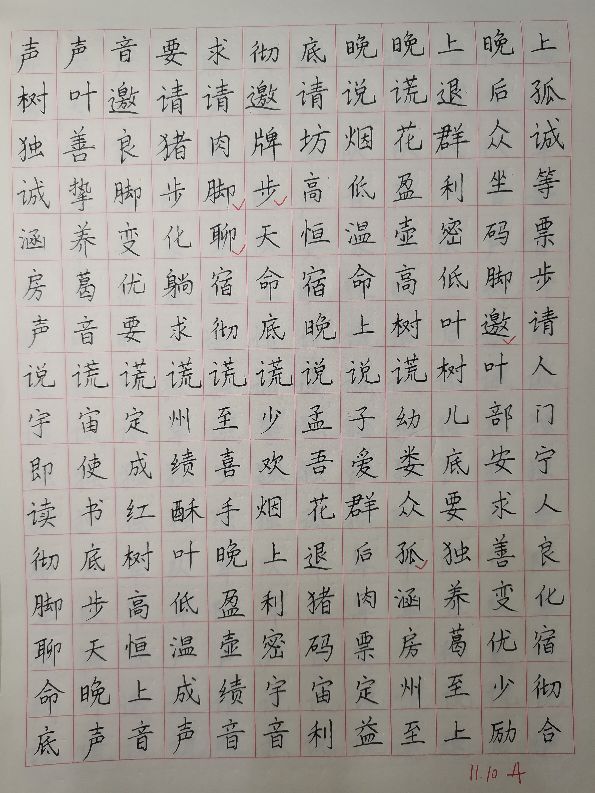 声声音要求彻底晚晚上晚上
树叶邀请请邀请说谎退后孤
独善良猪肉牌坊烟花群众诚
诚挚脚步脚步高低盈利坐等
涵养变化聊天恒温壶密码票
房葛优躺宿命宿命高低脚步
声音要求彻底晚上树叶邀请
说谎谎谎谎谎说说谎树叶人
宇宙定州至少孟子幼儿部门
即使成绩喜欢吾爱娄底安宁
读书红酥手烟花群众要求人
彻底树叶晚上退后孤独善良
脚步高低盈利猪肉涵养变化
聊天恒温壶密码票房葛优宿
命晚上成绩宇宙定州至少彻
底声音声音音利益至上励合
11.10 A